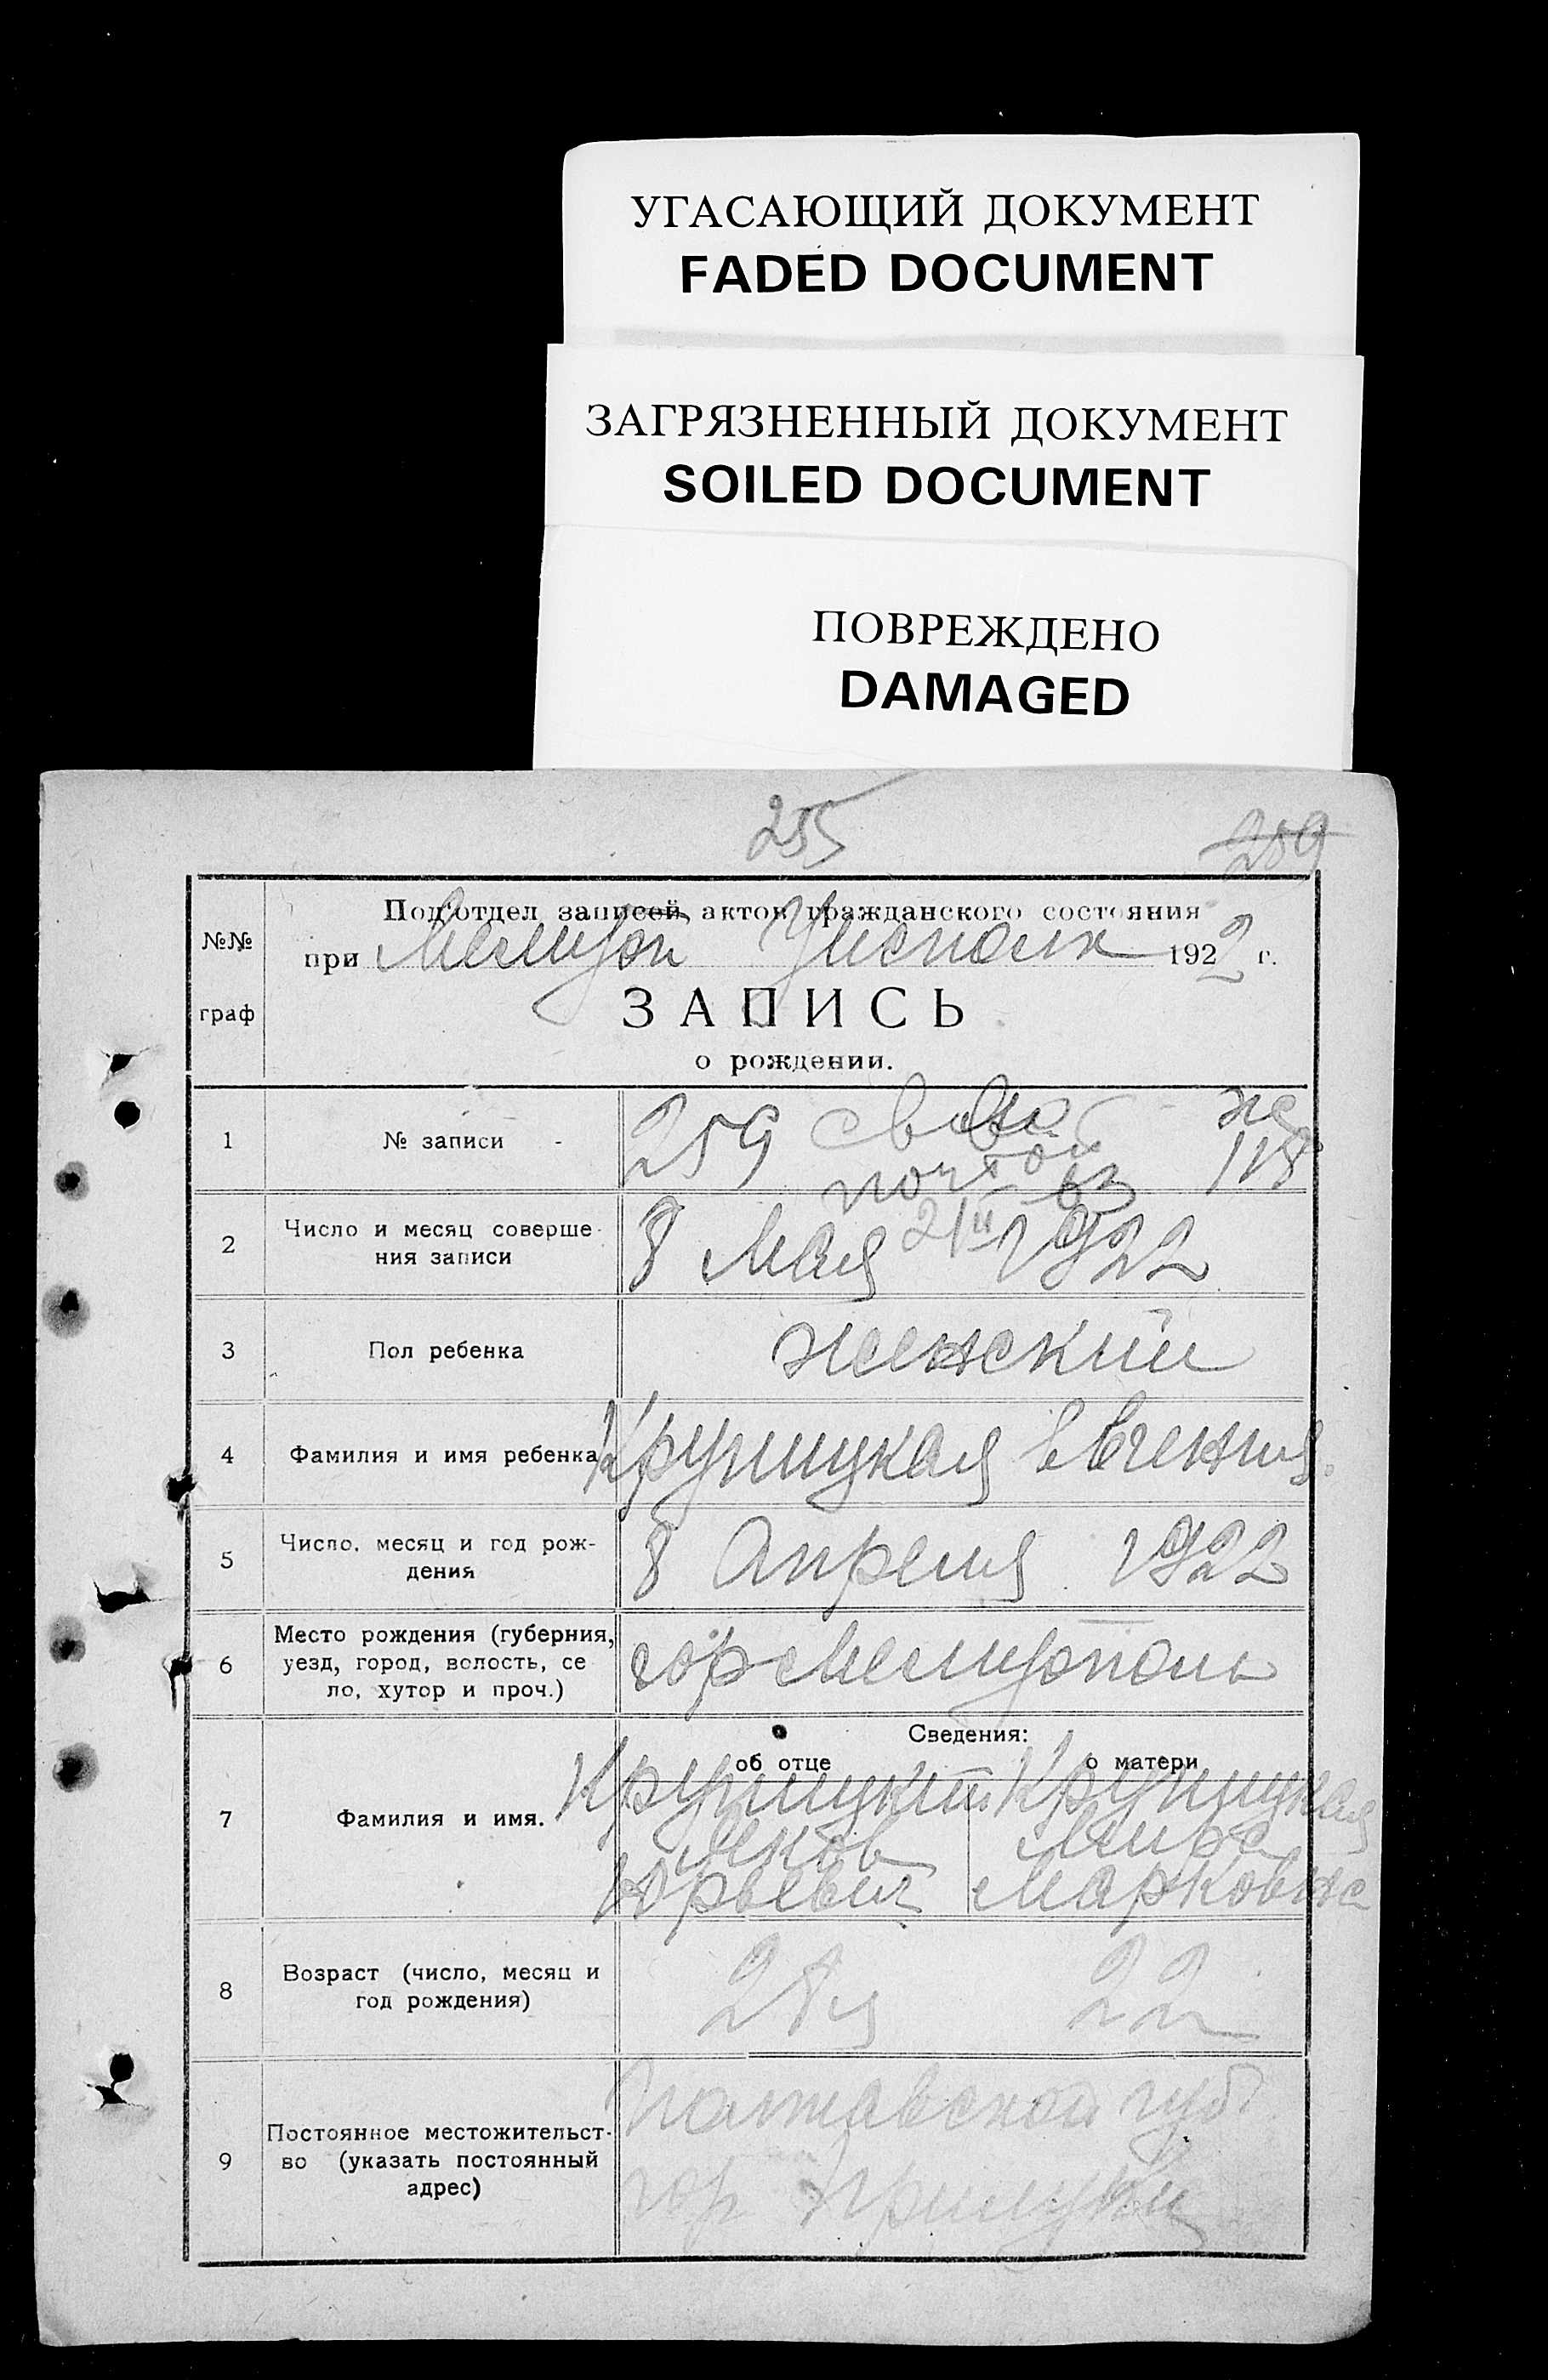 УГАСАЮЩИЙ ДОКУМЕНТ
FADED DOCUMENT
ЗАГРЯЗНЕННЫЙ ДОКУМЕНТ
SOILED DOCUMENT
ПОВРЕЖДЕНО
DAMAGED
255
259
№№ граф
Под'отдел записей актов гражданского состояния
при 1922 г.
ЗАПИСЬ
о рождении.
1 № записи - 259
почтой
2 Число и месяц соверше-
ния записи 8 Мая 1922
3 Пол ребенка женский
4 Фамилия и имя ребенка Крупицкая Евгения
5 Число, месяц и год рож-
дения 8 Апреля 1922
6 Место рождения (губерния,
уезд, город, волость, се
ло, хутор и проч.) гор Мелитополь
Сведения:
об отце о матери
7 Фамилия и имя. Крупицкий Крупицкая
Яков
Юрьевич Марковна
8 Возраст (число, месяц и
год рождения) 22
9 Постоянное местожительст-
во (указать постоянный
адрес) Полтавской губ
гор Прилуки